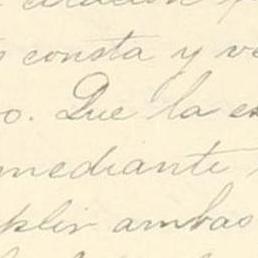 consta y ve
o. Que la es
mediante
plir ambas